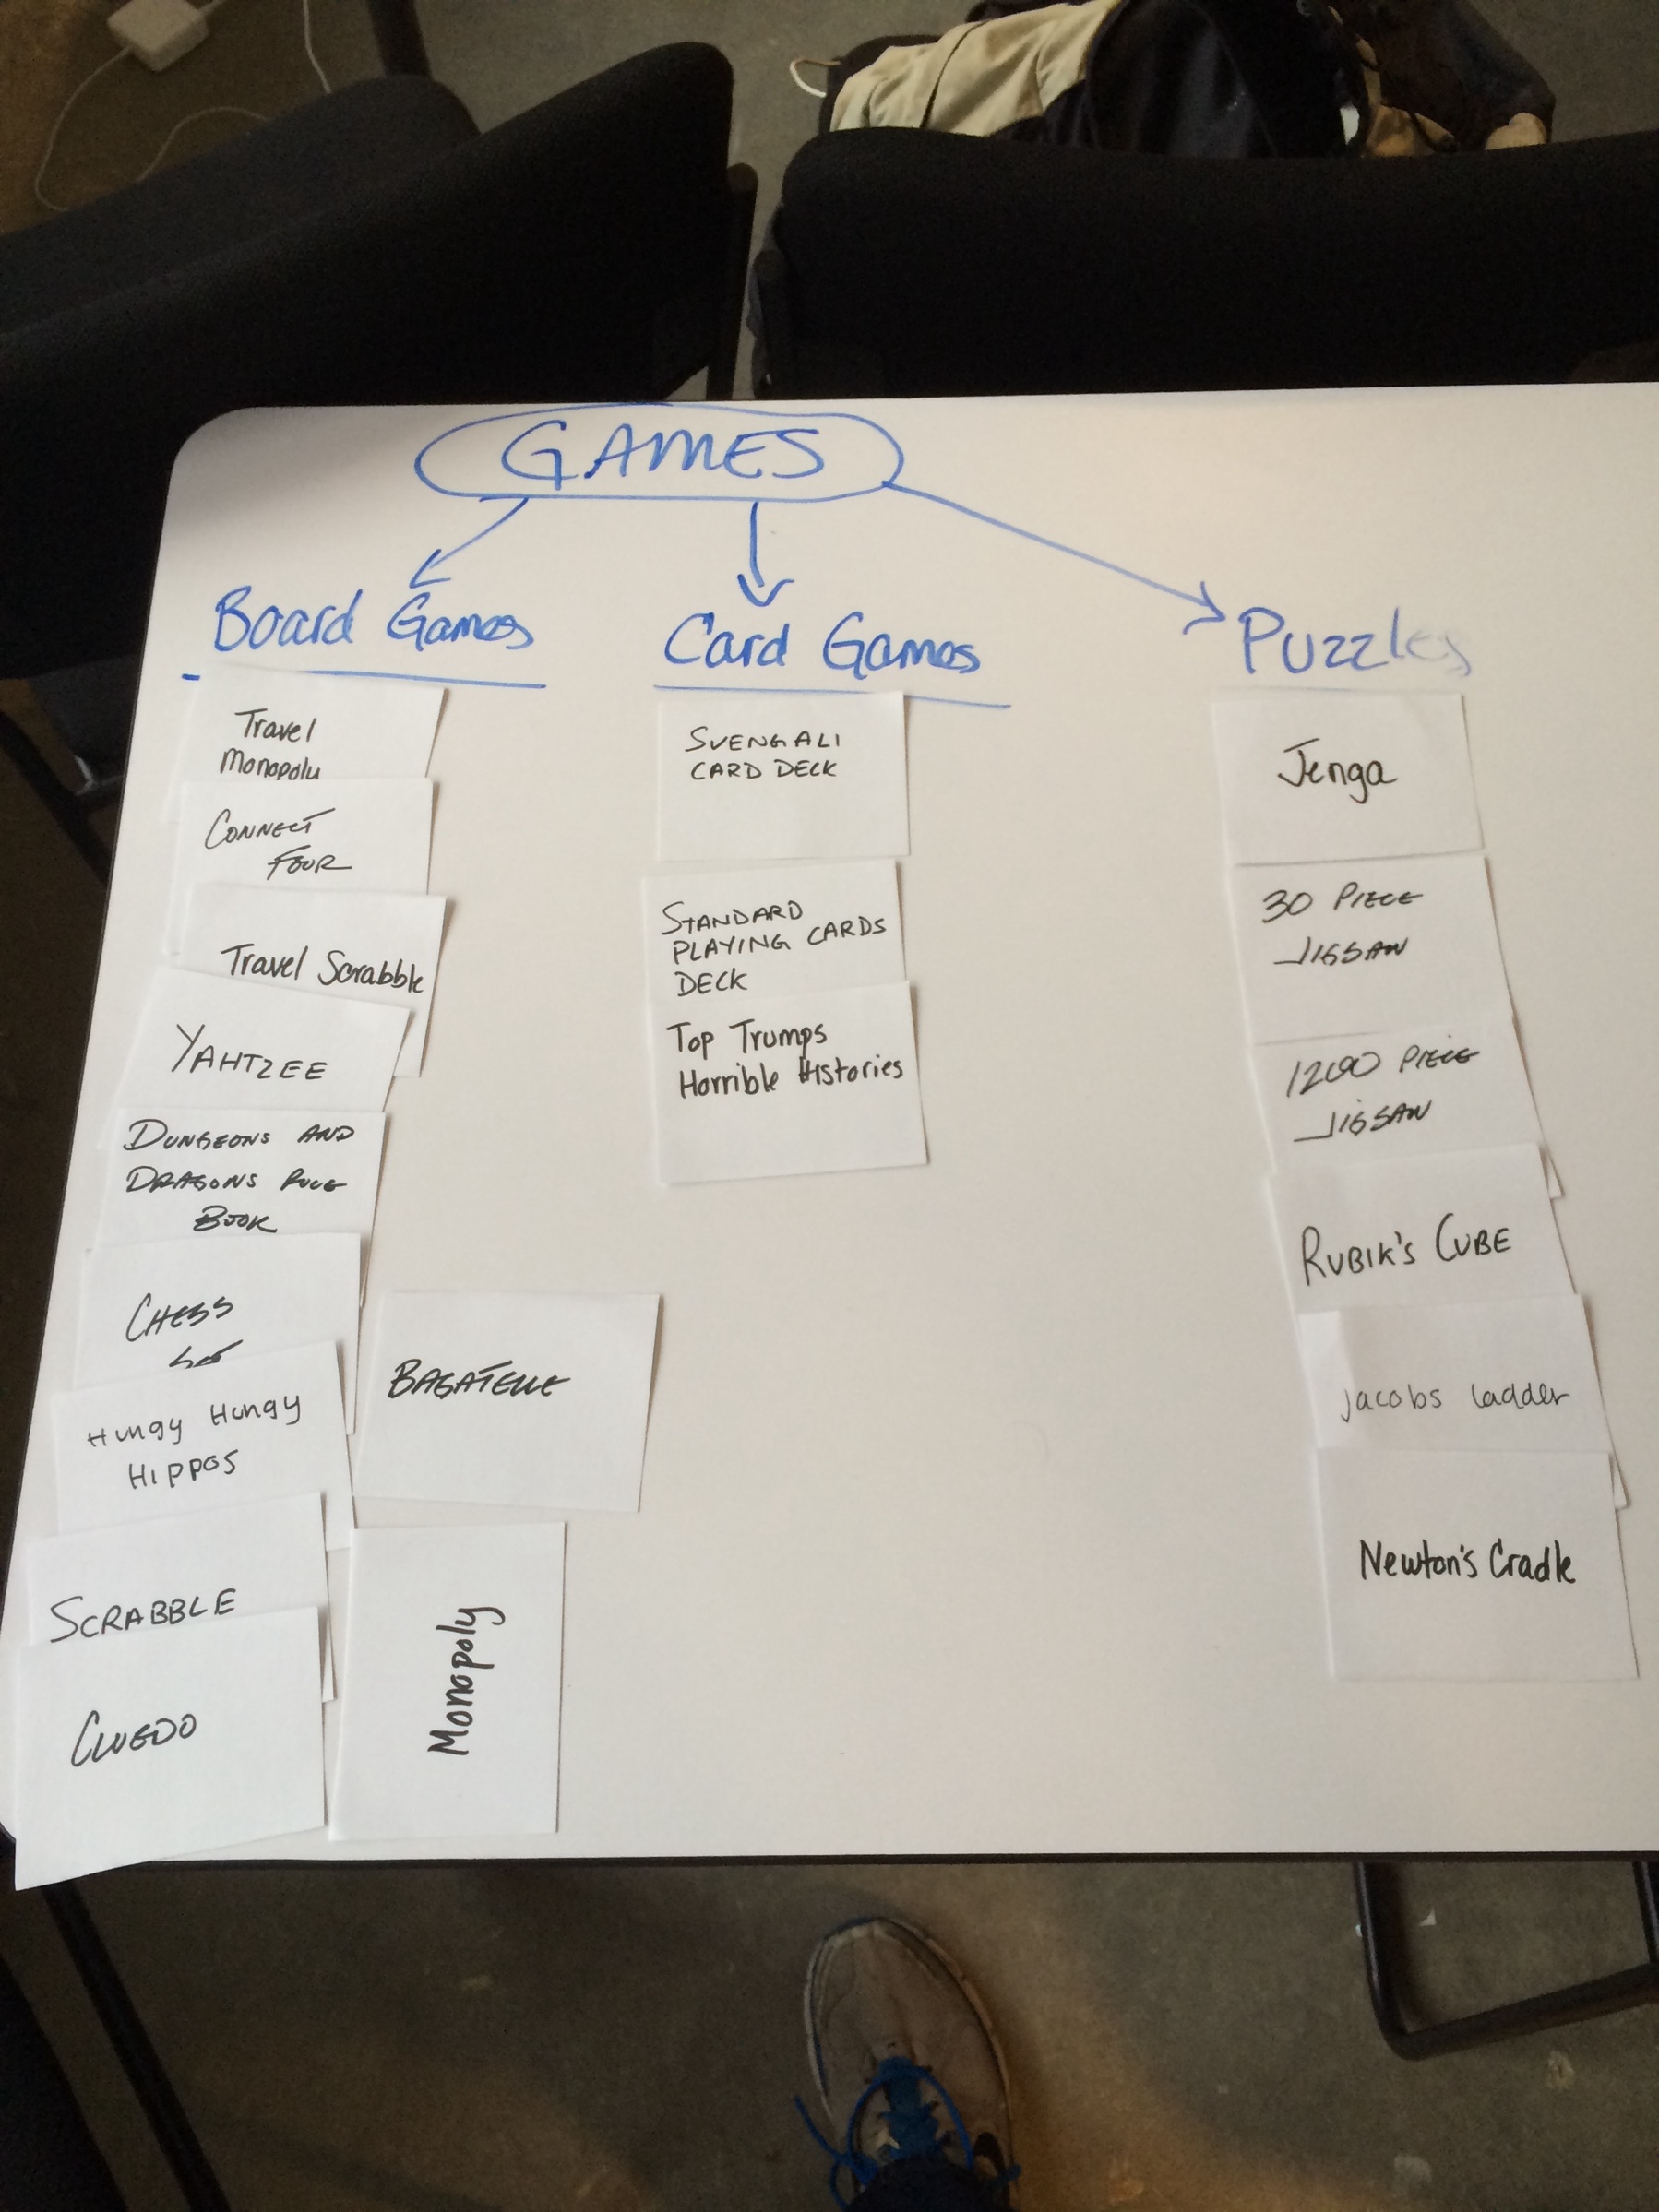 GAMES
Board Games
Travel
Monopoly
CONNECT
FOUR
Travel Scrabble
YAHTZEE
DUNGEONS AND
DRAGONS RULE
BOOK
CHESS
SET
Hungy Hungy
Hippos
SCRABBLE
CLUEDO
BAGATELLE
Monopoly
Card Games
SVENGALI
CARD DECK
STANDARD
PLAYING CARDS
DECK
Top Trumps
Horrible Histories
Puzzles
Jenga
30 PIECE
JIGSAW
1200 PIECE
JIGSAW
RUBIK'S CUBE
Jacobs ladder
Newton's Cradle